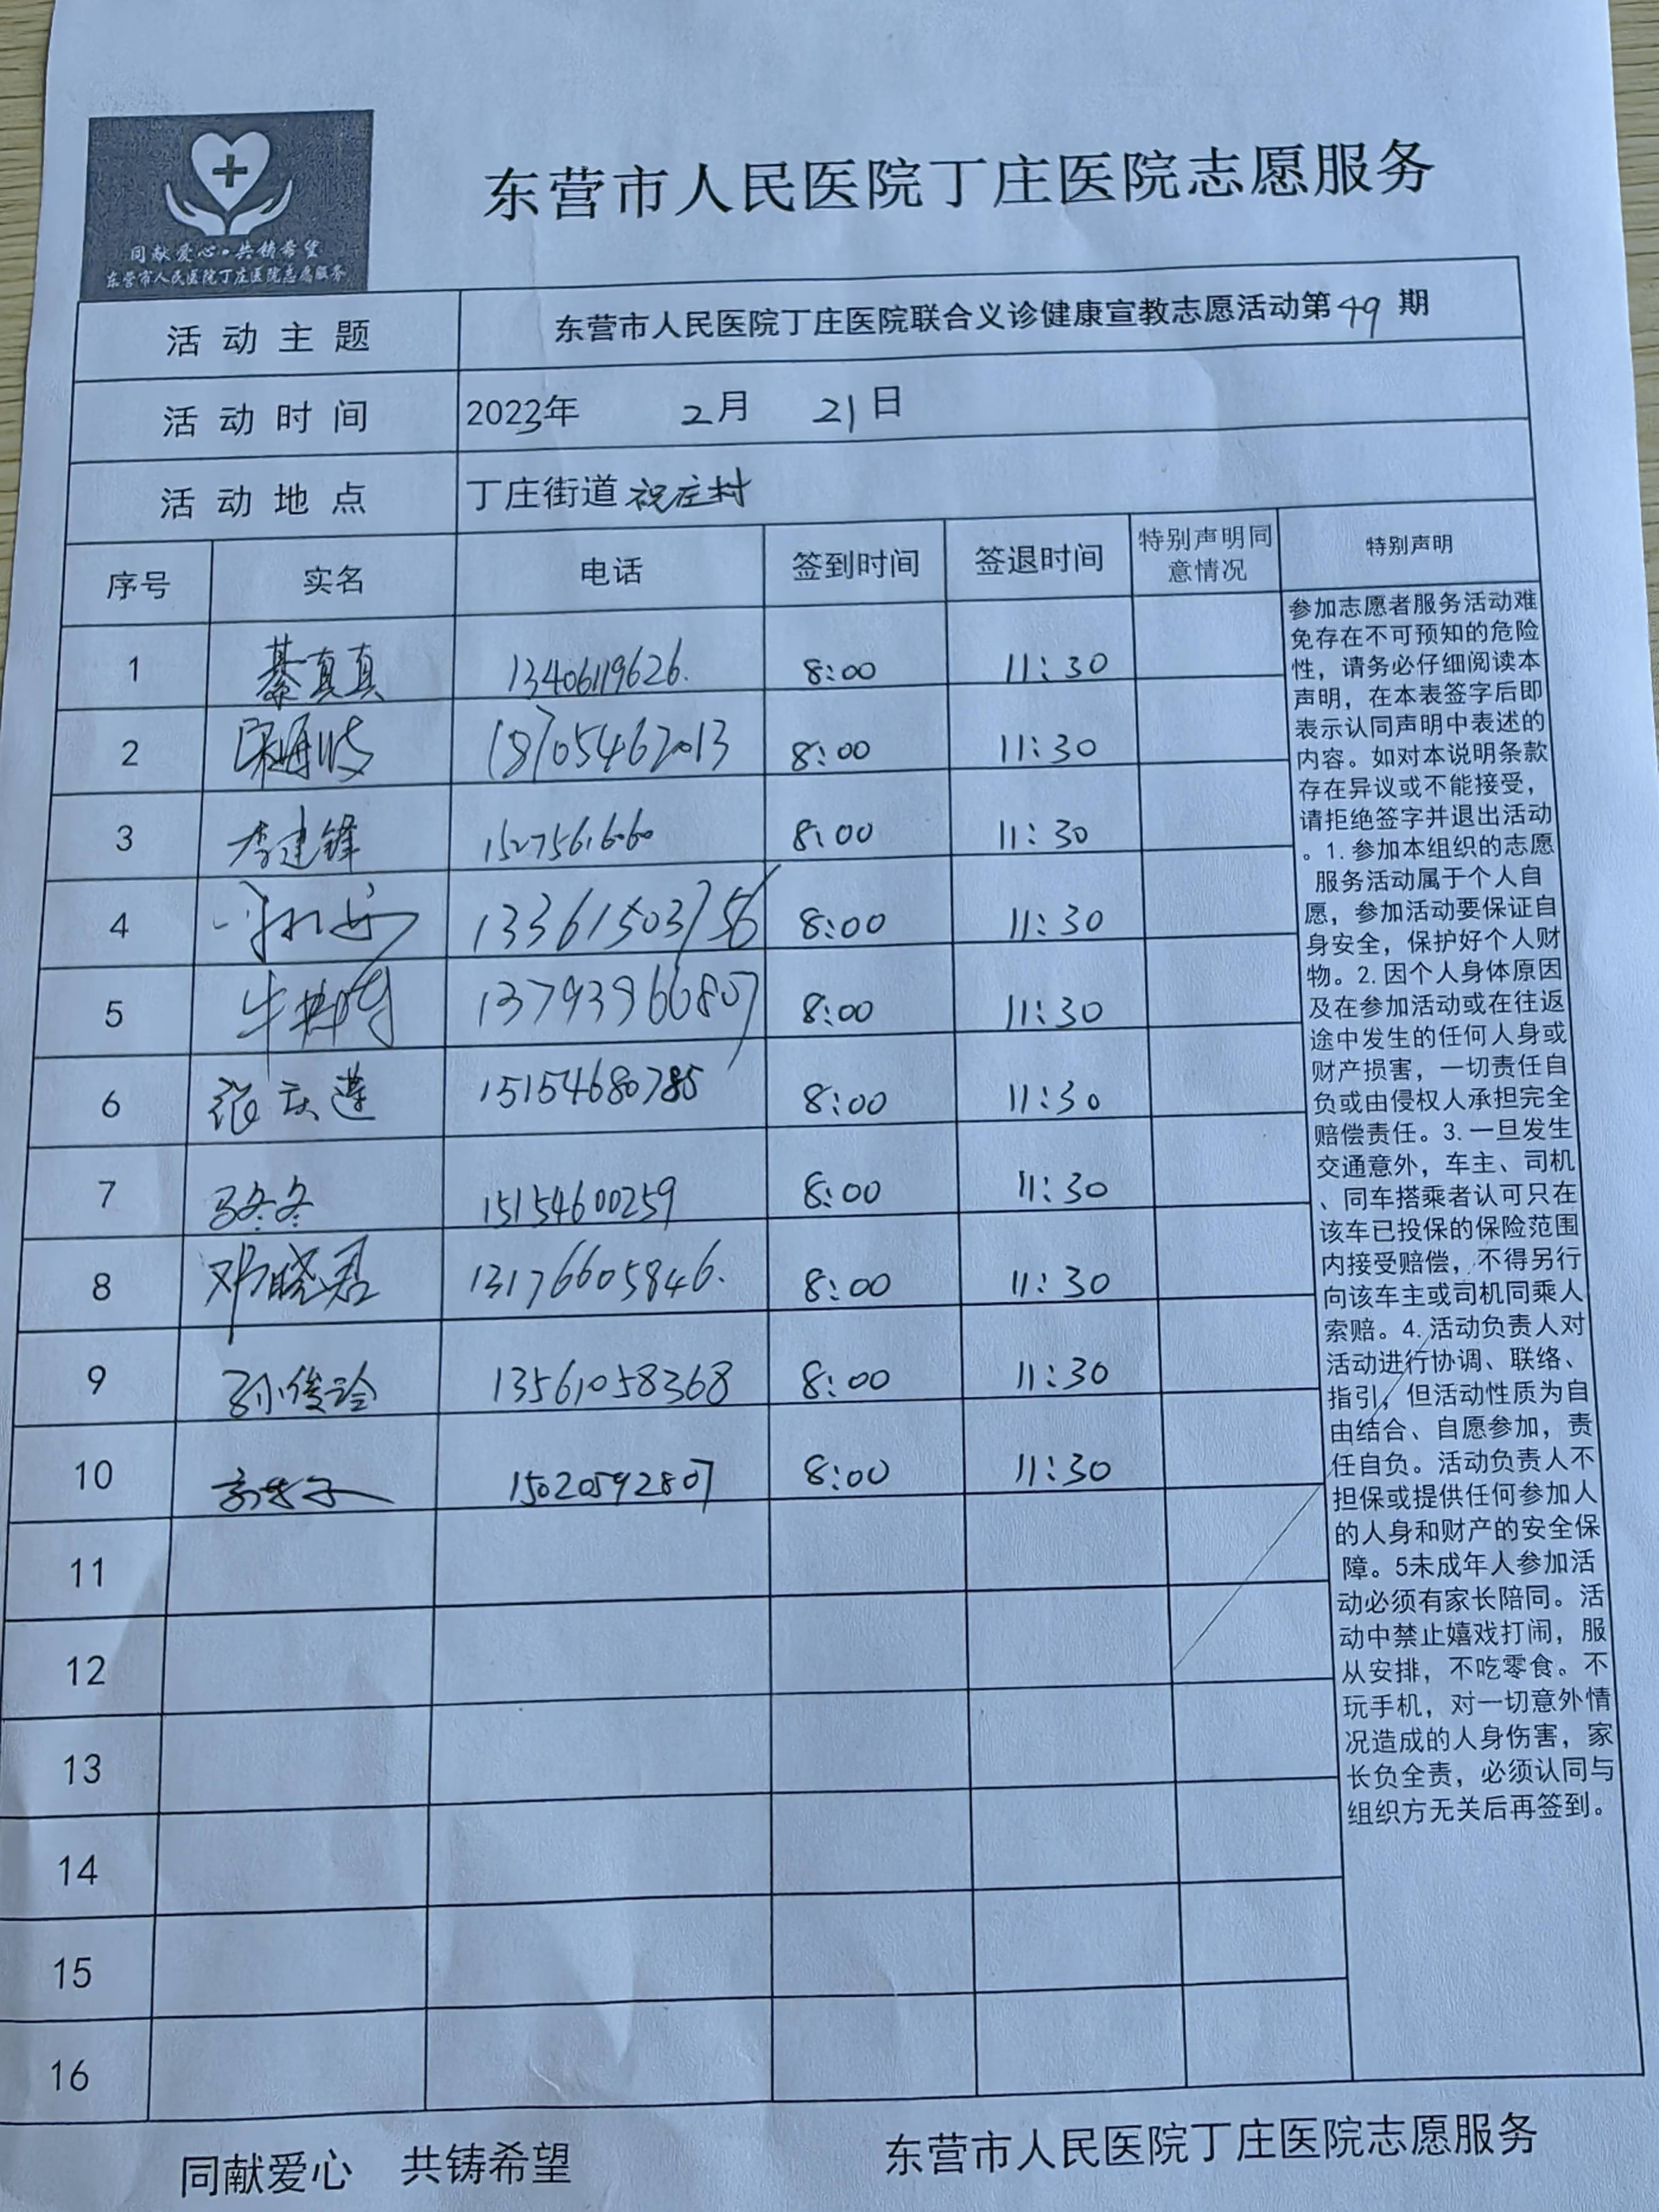 同献爱心·共铸希望
东营市人民医院丁庄医院志愿服务
东营市人民医院丁庄医院志愿服务
活动主题 东营市人民医院丁庄医院联合义诊健康宣教志愿活动第49期
活动时间 2023年 2月 21日
活动地点 丁庄街道祝庄村
序号 实名 电话 签到时间 签退时间 特别声明同意情况 特别声明
1 綦真真 13406119626. 8:00 11:30
2 18705462013 8:00 11:30
3 李建锋 15275616060 8:00 11:30
4 13361503756 8:00 11:30
5 13793966807 8:00 11:30
6 张庆莲 15154680785 8:00 11:30
7 马冬冬 15154600259 8:00 11:30
8 邓晓君 13176605846. 8:00 11:30
9 孙俊玲 13561058368 8:00 11:30
10 15020592807 8:00 11:30
11
12
13
14
15
16
参加志愿者服务活动难
免存在不可预知的危险
性，请务必仔细阅读本
声明，在本表签字后即
表示认同声明中表述的
内容。如对本说明条款
存在异议或不能接受，
请拒绝签字并退出活动
。1.参加本组织的志愿
服务活动属于个人自
愿，参加活动要保证自
身安全，保护好个人财
物。2.因个人身体原因
及在参加活动或在往返
途中发生的任何人身或
财产损害，一切责任自
负或由侵权人承担完全
赔偿责任。3.一旦发生
交通意外，车主、司机
、同车搭乘者认可只在
该车已投保的保险范围
内接受赔偿，不得另行
向该车主或司机同乘人
索赔。4.活动负责人对
活动进行协调、联络、
指引，但活动性质为自
由结合、自愿参加，责
任自负。活动负责人不
担保或提供任何参加人
的人身和财产的安全保
障。5未成年人参加活
动必须有家长陪同。活
动中禁止嬉戏打闹，服
从安排，不吃零食。不
玩手机，对一切意外情
况造成的人身伤害，家
长负全责，必须认同与
组织方无关后再签到。
同献爱心 共铸希望 东营市人民医院丁庄医院志愿服务